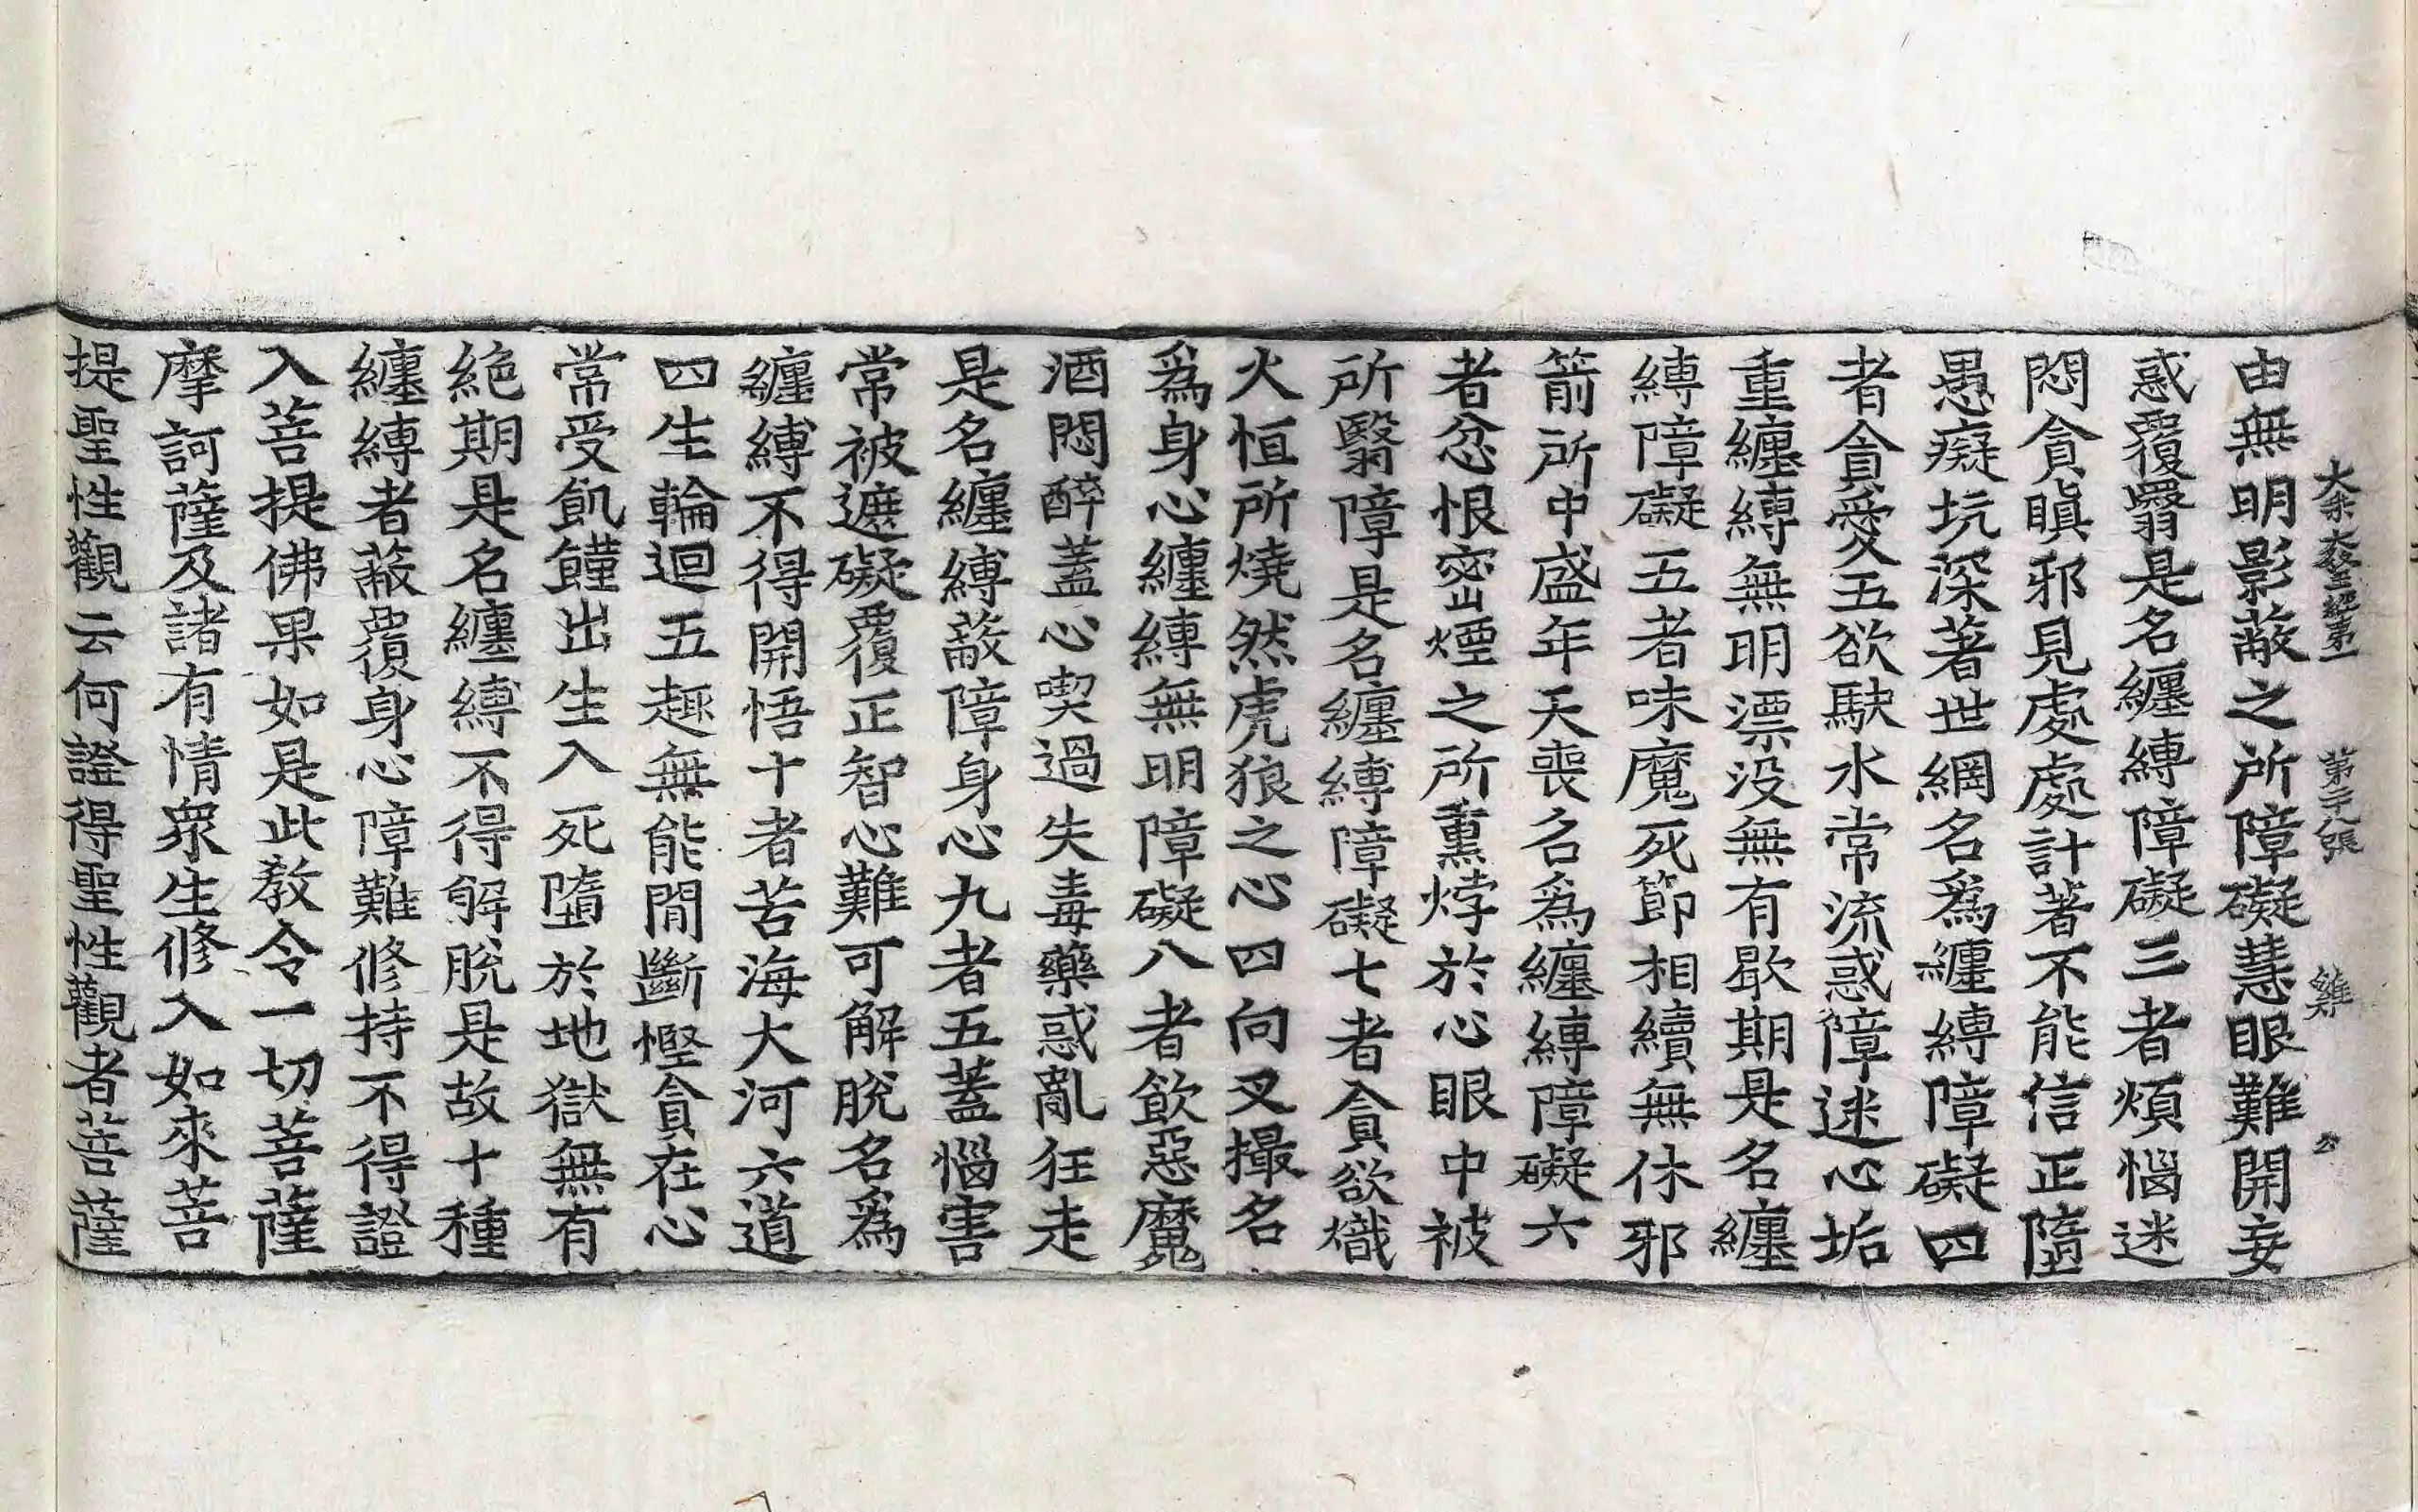 大乘大教王經第一 第二十八張 雞 公
由無明影蔽之所障礙慧眼難開妄
惑覆翳是名纏縛障礙三者煩惱迷
悶貪瞋邪見處處計著不能信正墮
愚癡坑深著世網名爲纏縛障礙四
者貪愛五欲駃水常流惑障迷心垢
重纏縛無明漂没無有歇期是名纏
縛障礙五者味魔死節相續無休邪
箭所中盛年夭喪名爲纏縛障礙六
者忿恨密煙之所熏㶿於心眼中被
所翳障是名纏縛障礙七者貪欲熾
火恒所燒然虎狼之心四向叉撮名
爲身心纏縛無明障礙八者飲惡魔
酒悶醉蓋心喫過失毒藥惑亂狂走
是名纏縛蔽障身心九者五蓋惱害
常被遮礙覆正智心難可解脫名爲
纏縛不得開悟十者苦海大河六道
四生輪迴五趣無能閒斷慳貪在心
常受飢饉出生入死墮於地獄無有
絶期是名纏縛不得解脫是故十種
纏縛者蔽覆身心障難修持不得證
入菩提佛果如是此教令一切菩薩
摩訶薩及諸有情衆生修入如來菩
提聖性觀云何證得聖性觀者菩薩